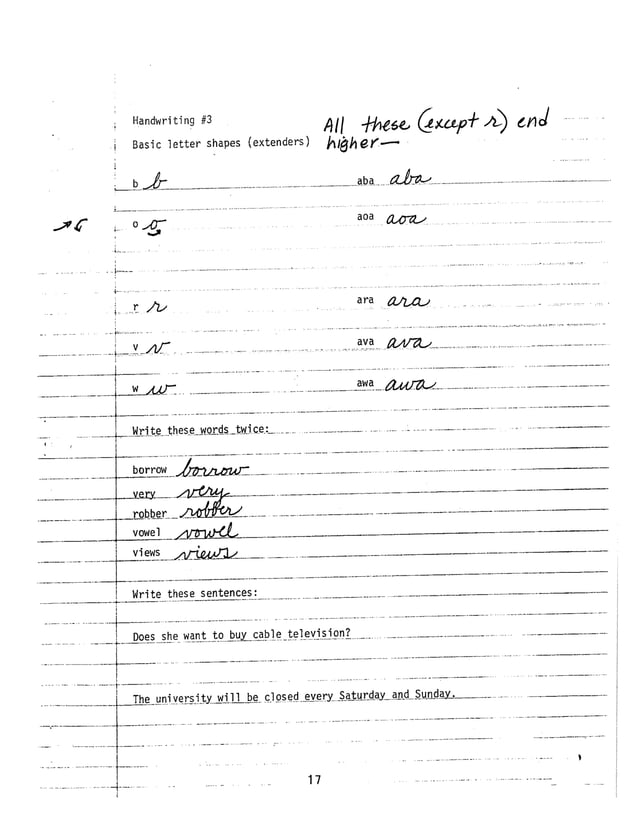 Handwriting #3
All these (except r) end
Basic letter shapes (extenders) higher—
b b aba aba
o o aoa aoa
r r ara ara
v v ava ava
w w awa awa
Write these words twice:
borrow borrow
very very
robber robber
vowel vowel
views views
Write these sentences:
Does she want to buy cable television?
The university will be closed every Saturday and Sunday.
17